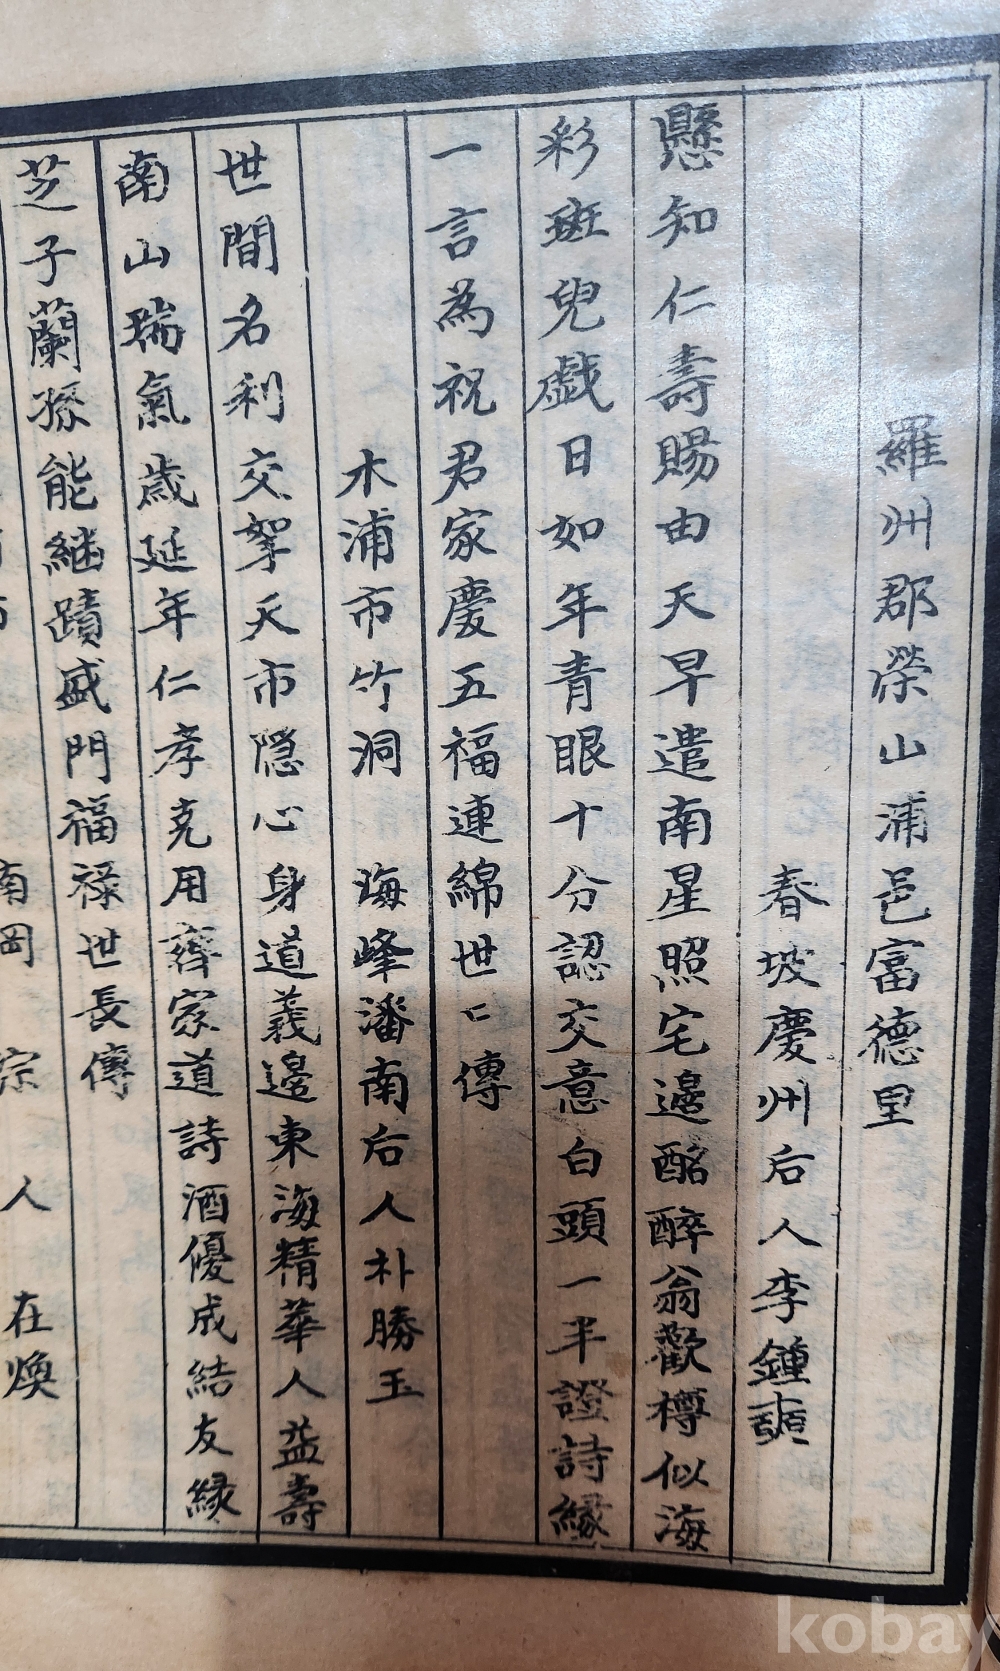 羅州郡榮山浦邑富德里
春坡慶州后人李鍾
懸知仁壽賜由天早遣南星照宅邊酩醉翁歡樽似海
彩斑兒戱日如年青眼十分認交意白頭一半證詩緣
一言為祝君家慶五福連綿世〻傳
木浦市竹洞 海峰潘南后人朴勝玉
世間名利交挐天市隠心身道義邊東海精華人益壽
南山瑞氣歲延年仁孝克用齊家道詩酒優成結友緣
芝子蘭孫能継蹟盛門福祿世長傳
南岡 宗人 在煥
kobay